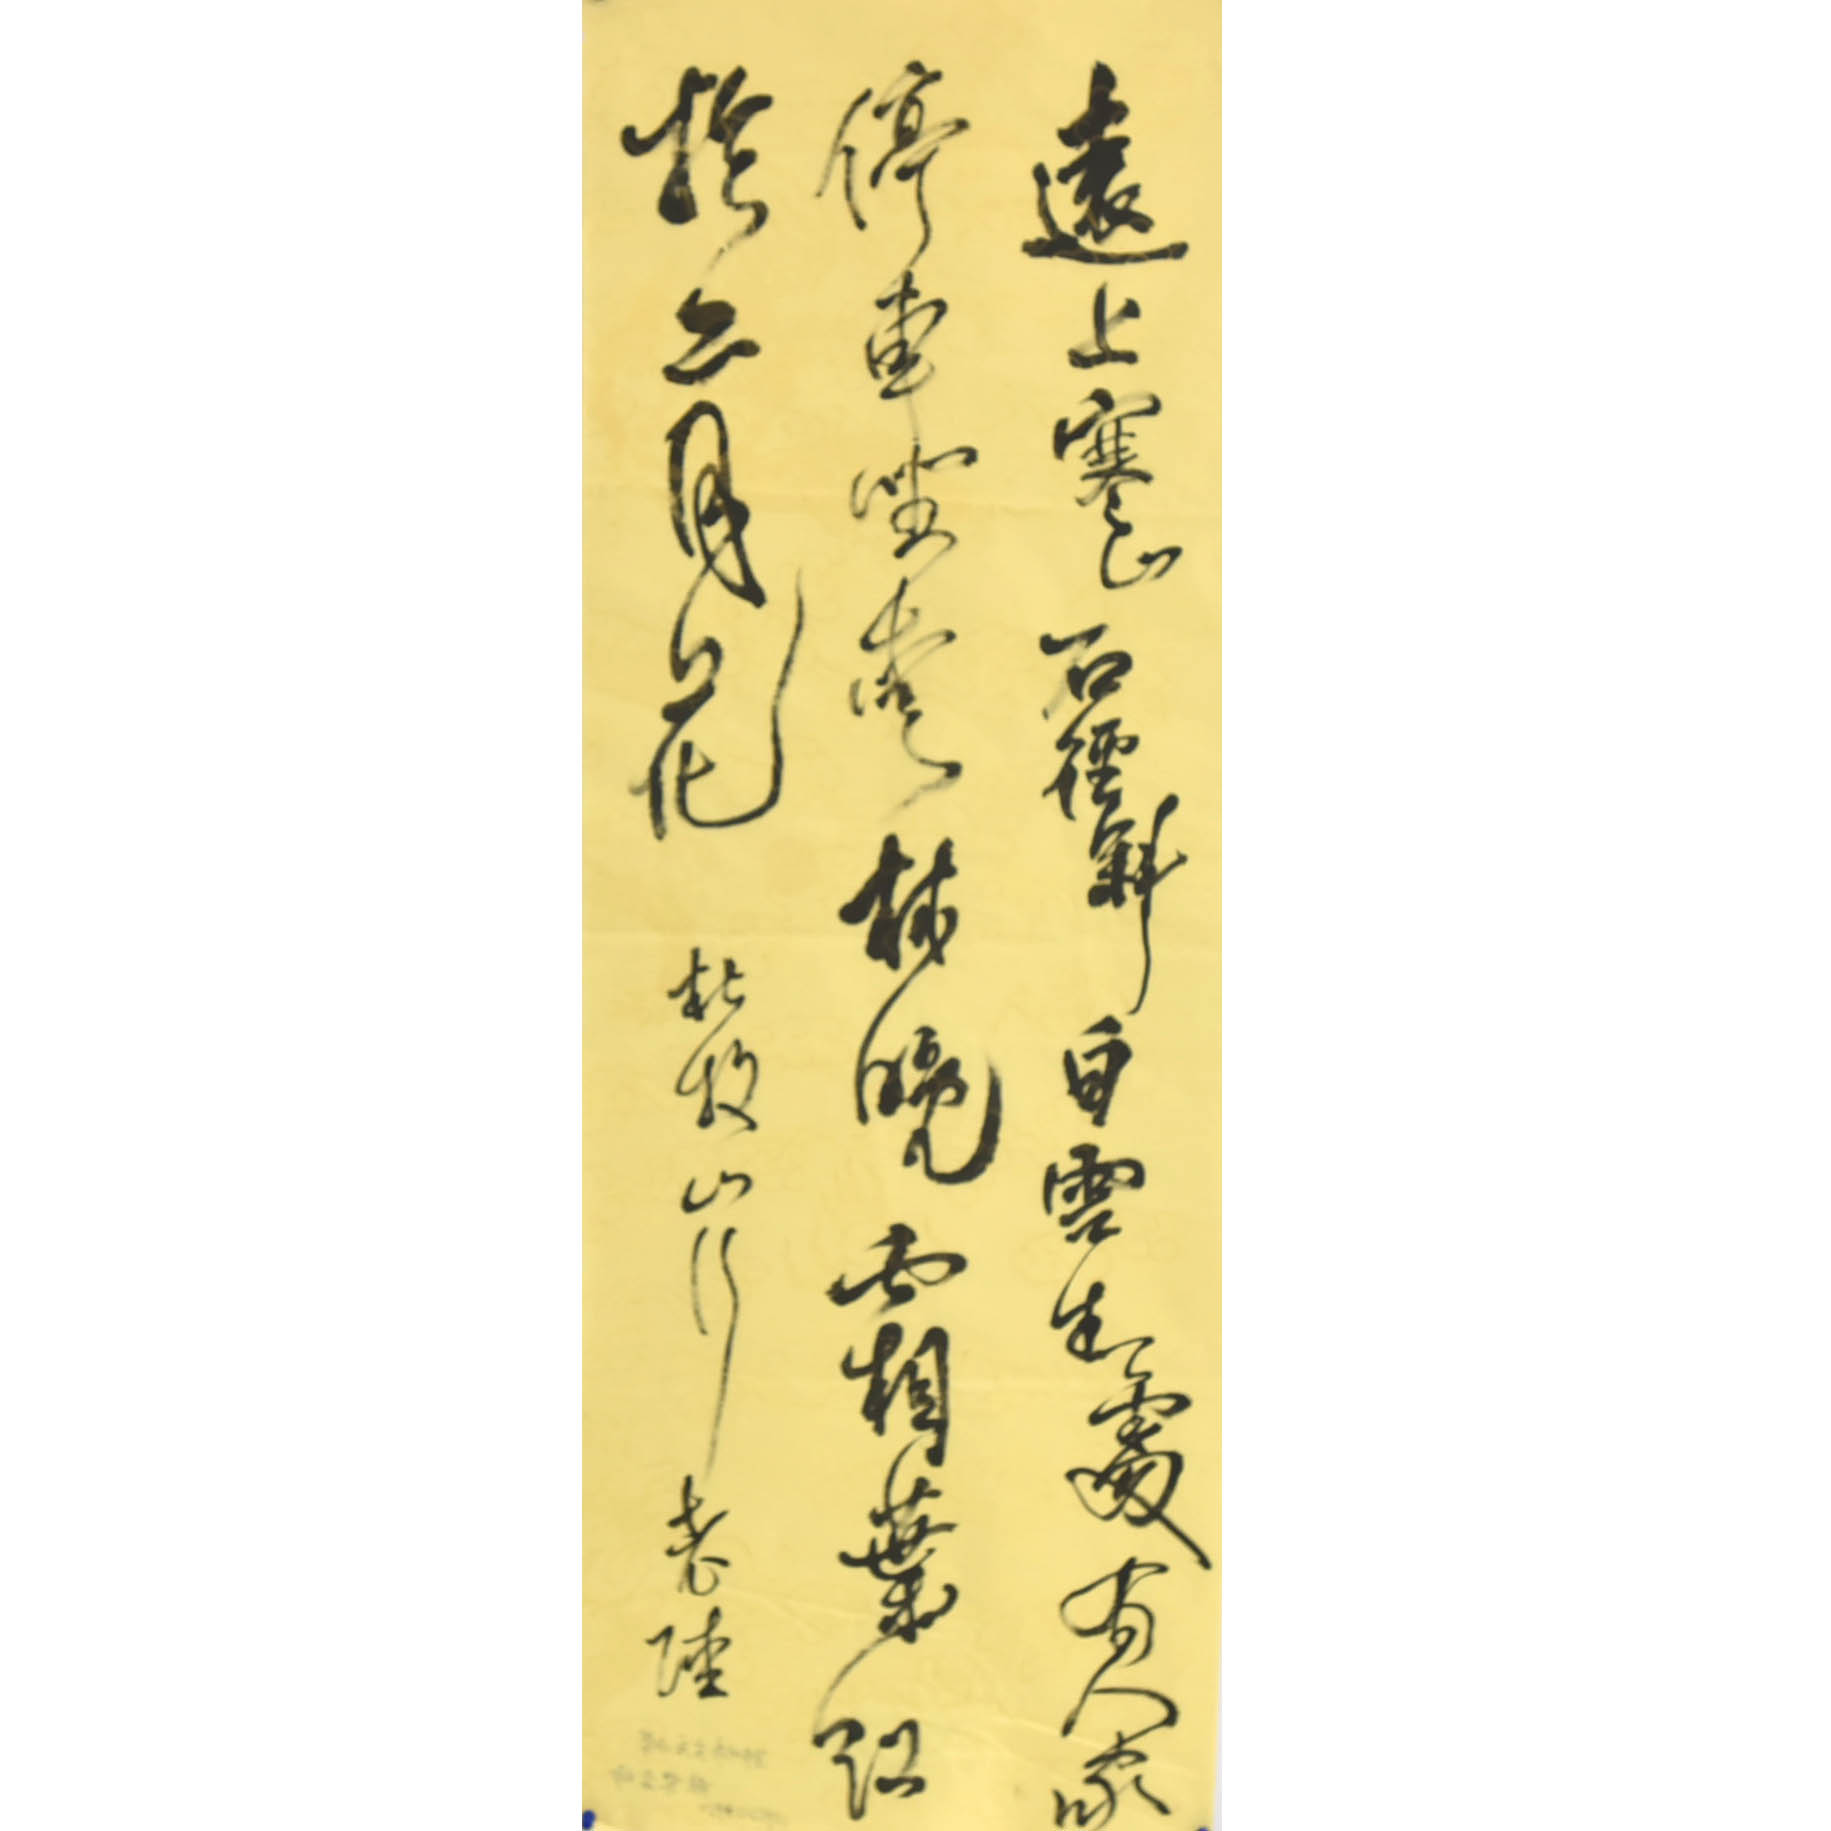 遠上寒山石徑斜白雲生處有人家
停車坐愛楓林晚霜葉紅
於二月花 杜牧山行 老陸